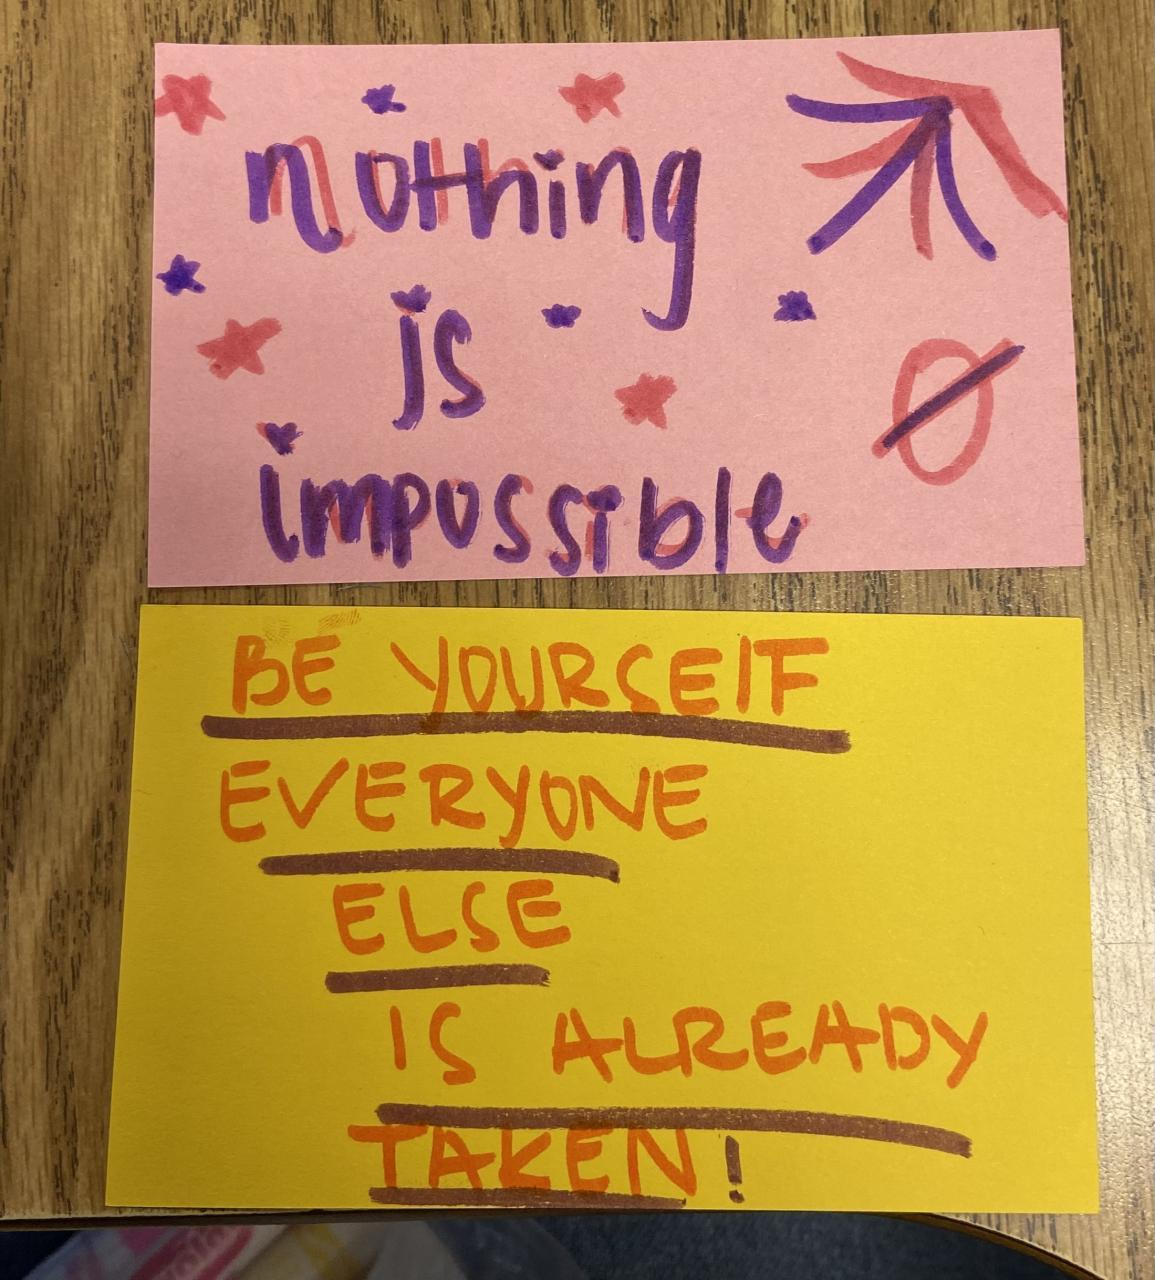 nothing
is
impossible
BE YOURSELF
EVERYONE
ELSE
IS ALREADY
TAKEN!